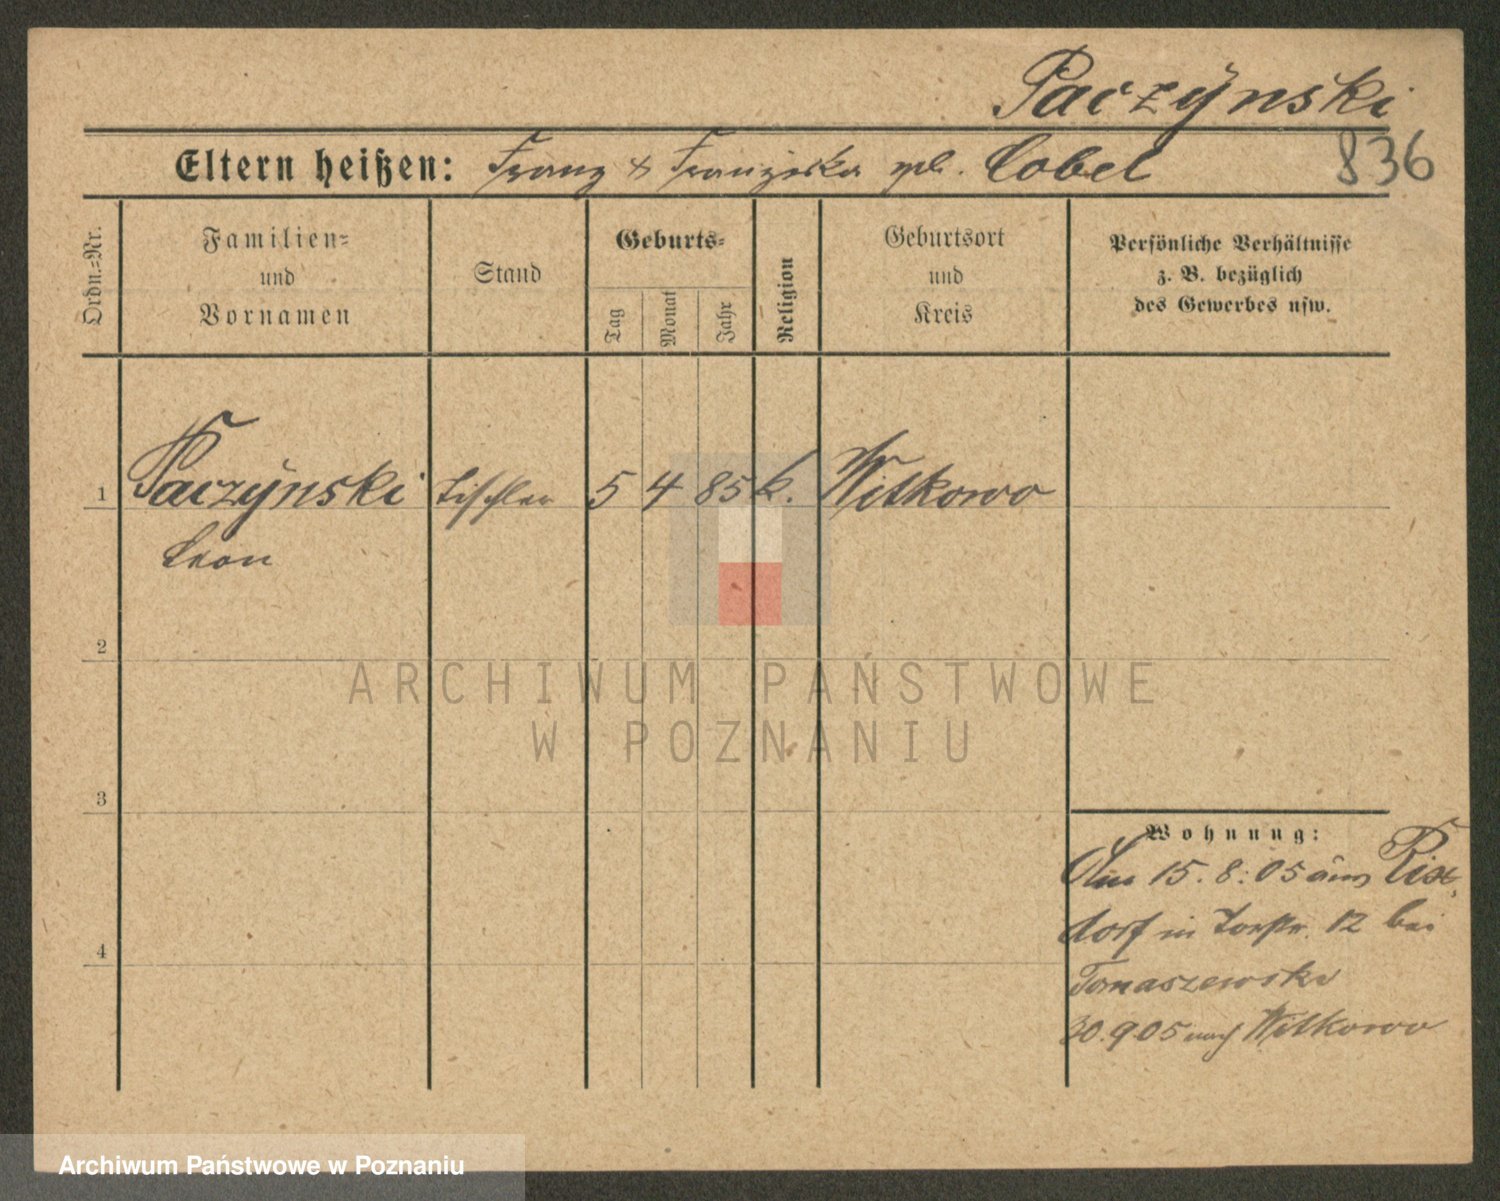 Paczynski
836
Eltern heißen: Franz & Franziska geb. Cobel
Ordn.-Nr.
Familien-
und
Vornamen
Stand
Geburts-
Tag
Monat
Jahr
Religion
Geburtsort
und
Kreis
Persönliche Verhältnisse
z. B. bezüglich
des Gewerbes usw.
1 Paczynski Tischler 5 4 85 k. Witkowo
Leon
2
3
4
Wohnung:
15. 8. 05 aus Rix-
dorf in 12 bei
Tomaszewski
30. 9. 05 nach Witkowo
ARCHIWUM PAŃSTWOWE
W POZNANIU
Archiwum Państwowe w Poznaniu